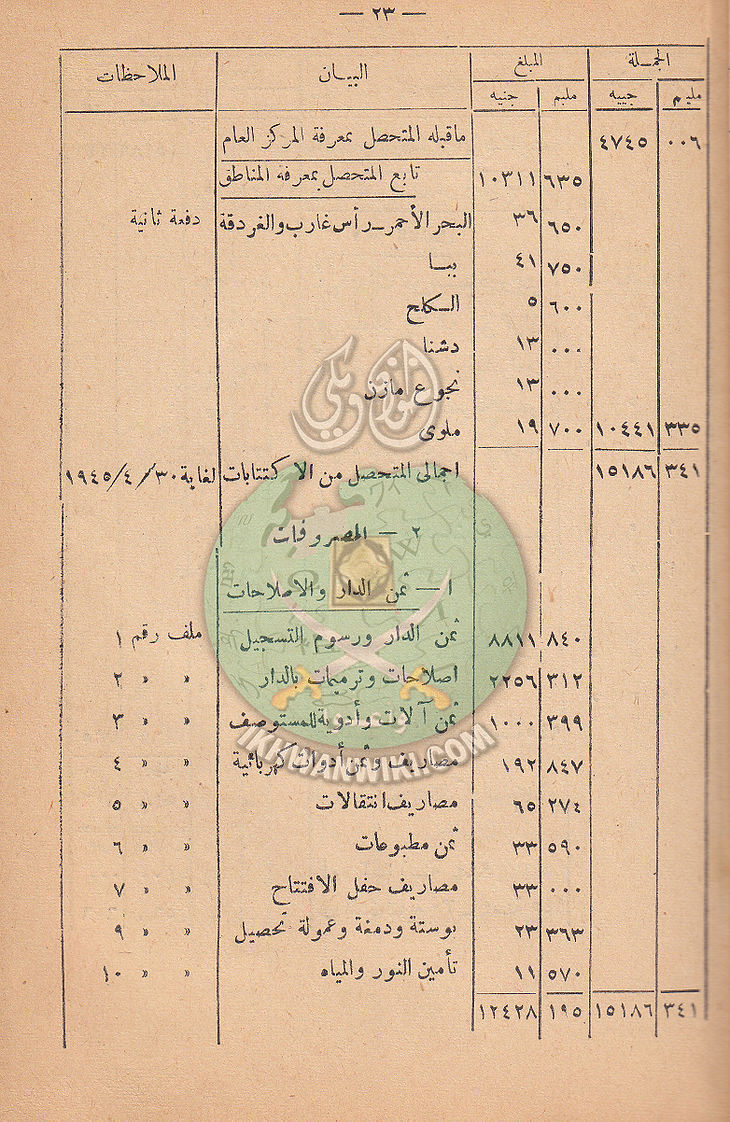 — ٢٣ —
الجمـلة المبلغ البيـــان الملاحظات
مليم جنيه مليم جنيه
٠٠٦ ٤٧٤٥ ماقبله المتحصل بمعرفة المركز العام
٦٣٥ ١٠٣١١ تابع المتحصل بمعرفة المناطق
٦٥٠ ٣٦ البحر الأحمر ــ رأس غارب والغردقة دفعة ثانية
٧٥٠ ٤١ ببــا
٦٠٠ ٥ الـكلح
٠٠٠ ١٣ دشنا
٠٠٠ ١٣ نجوع مازن
٣٣٥ ١٠٤٤١ ٧٠٠ ١٩ ملوى
٣٤١ ١٥١٨٦ اجمالى المتحصل من الاكتتابات لغاية ٣٠/٤/١٩٤٥
٢ — المصروفات
١ — ثمن الدار والاصلاحات
٨٤٠ ٨٨١١ ثمن الدار ورسوم التسجيل ملف رقم ١
٣١٢ ٢٢٥٦ اصلاحات وترميمات بالدار » » ٢
٣٩٩ ١٠٠٠ ثمن آلات وأدوية للمستوصف » » ٣
٨٤٧ ١٩٢ مصاريف وثمن أدوات كهربائية » » ٤
٢٧٤ ٦٥ مصاريف انتقالات » » ٥
٥٩٠ ٣٣ ثمن مطبوعات » » ٦
٠٠٠ ٣٣ مصاريف حفل الافتتاح » » ٧
٣٦٣ ٢٣ بوستة ودمغة وعمولة تحصيل » » ٩
٥٧٠ ١١ تأمين النور والمياه » » ١٠
٣٤١ ١٥١٨٦ ١٩٥ ١٢٤٢٨
IKHWANWIKI.COM